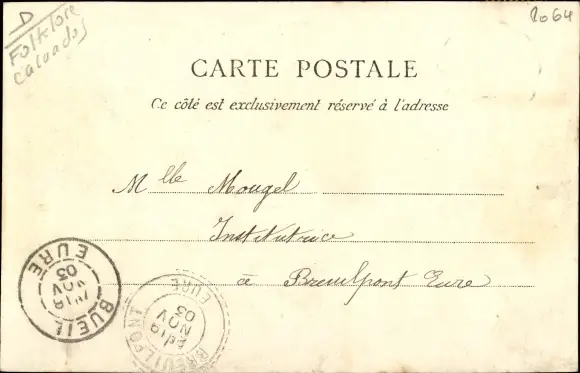 D
Folklore
Calvados
2064
CARTE POSTALE
Ce côté est exclusivement réservé à l'adresse
Mlle Mougel
Institutrice
à Breuilpont Eure
BUEIL
18
NOV
03
EURE
BREUILPONT
19
NOV
03
EURE